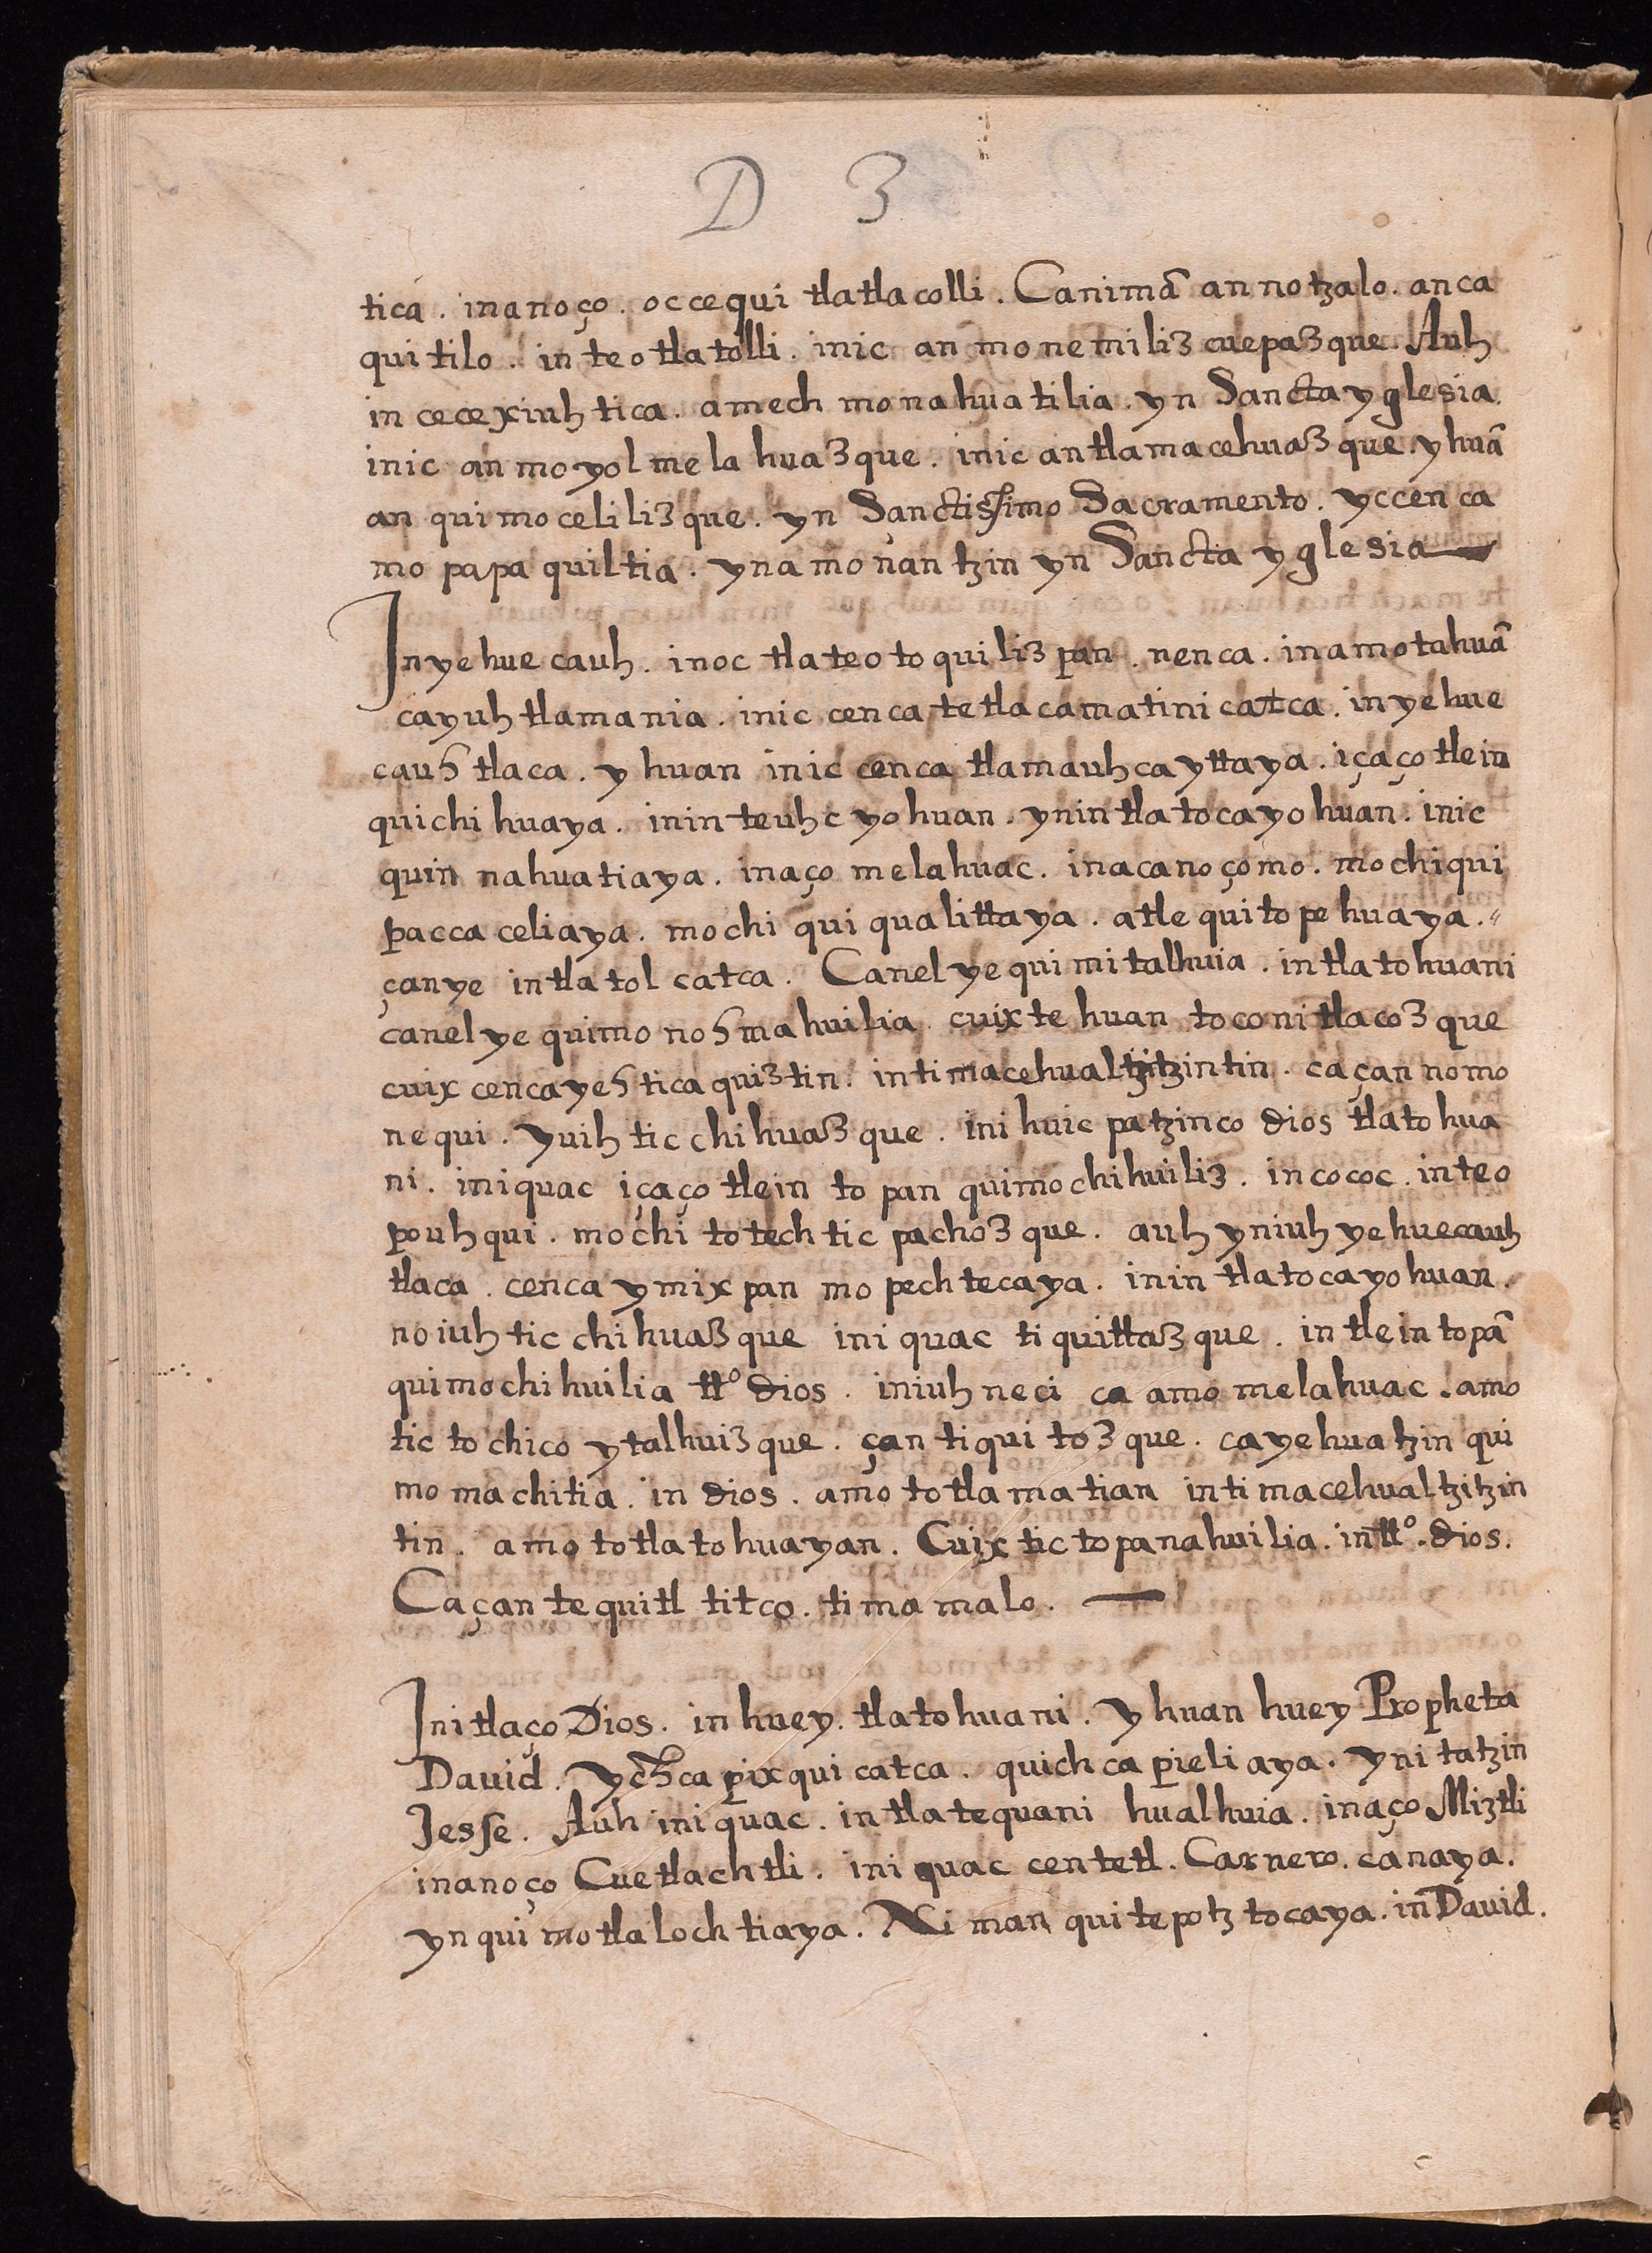 D 3
tica . inanoço . occequi tlatlacolli . Canimã annotzalo . anca
quitilo . in teotlatolli . inic anmonemiliz cuepazque . Auh
in cecexiuhtica . amechmonahuatilia . yn Sancta yglesia .
inic anmoyolmelahuazque . inic antlamacehuazque . yhuã
anquimocelilizque . yn Sanctissimo Sacramento . yc cenca
mopapaquiltia . yn amonantzin yn Sancta yglesia
In yehuecauh . inoc tlateotoquilizpan . nenca . in amotahuã
ca yuh tlamania . inic cenca tetlacamatini catca . in yehue
cauh tlaca . yhuan inic cenca tlamauhcayttaya . içaço tlein
quichihuaya . inin teuhcyohuan . ynin tlatocayohuan . inic
quinnahuatiaya . in aço melahuac . in acanoçomo . mochi qui
paccaceliaya . mochi quiqualittaya . atle quitopehuaya .
çan ye in tlatol catca . Canel ye quimitalhuia . in tlatohuani
canel ye quimonohmahuilia . cuix tehuan toconitlacozque
cuix cenca yehticaquiztin . in timacehualtzitzintin . ca çan no mo
nequi . yuih ticchihuazque . in ihuicpatzinco Dios tlatohua
ni . in iquac içaço tlein topan quimochihuiliz . in cococ . in teo
pouhqui . mochi totech ticpachozque . auh yn iuh yehuecauh
tlaca . cenca ymixpan mopechtecaya . inin tlatocayohuan .
no iuh ticchihuazque in iquac tiquittazque . in tlein topã
quimochihuilia tt.º Dios . in iuh neci ca amo melahuac . amo
tictochicoytalhuizque . çan tiquitozque . ca yehuatzin qui
momachitia . in Dios . amo totlamatian in timacehualtzitzin
tin . amo totlatohuayan . Cuix tictopanahuilia . in tt.º Dios .
Ca çan tequitl titco . timamalo .
In itlaço Dios . in huey . tlatohuani . yhuan huey Propheta
Dauid . ychcapixqui catca . quichcapieliaya . yn itatzin
Jesse . Auh in iquac . in tlatequani hualhuia . in aço Miztli
in anoço Cuetlachtli . in iquac centetl . Carnero . canaya .
yn quimotlalochtiaya . Niman quitepotztocaya . in Dauid .